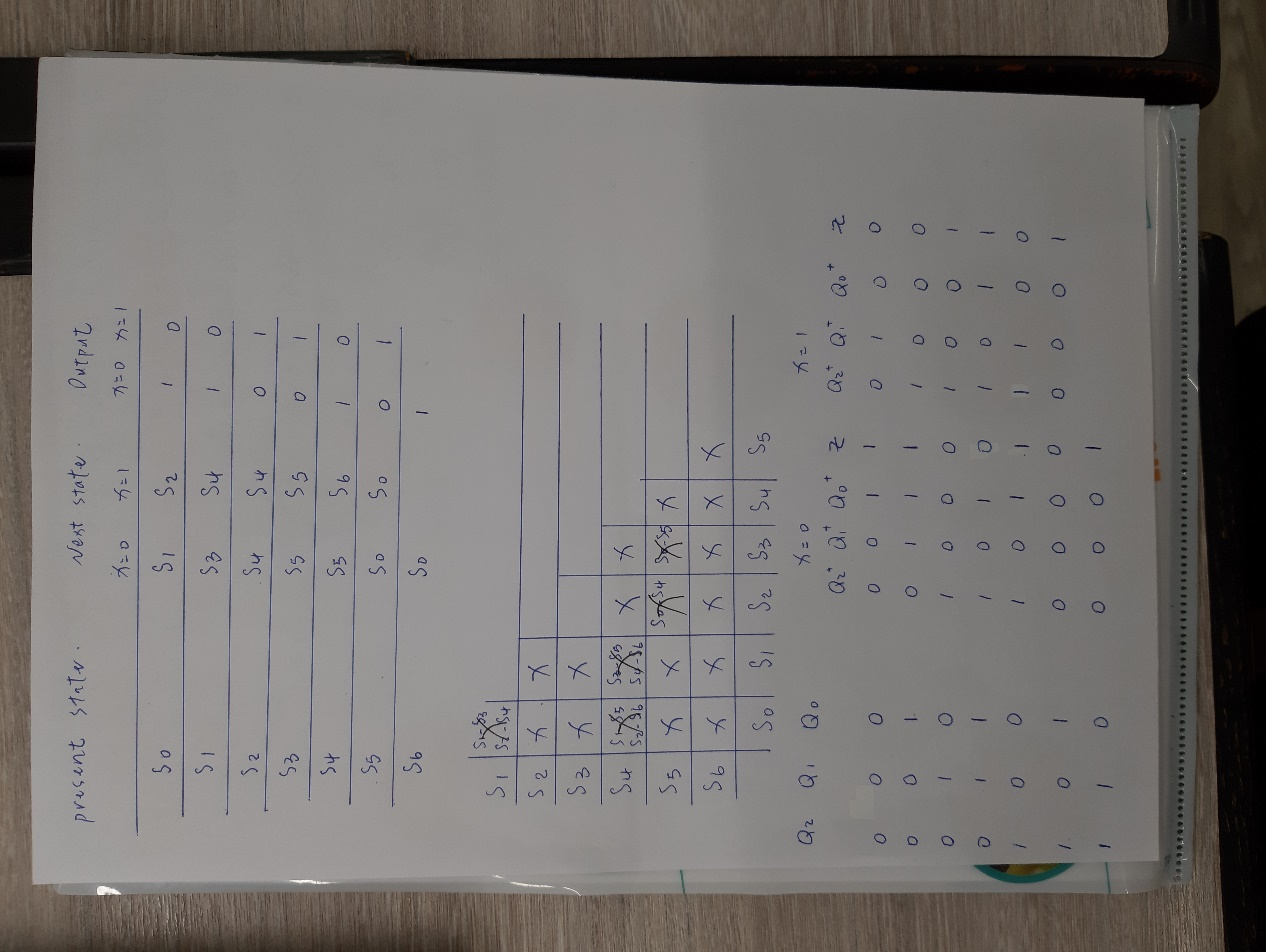 present state. Next state. Output
x=0 x=1 x=0 x=1
S0 S1 S2 1 0
S1 S3 S4 1 0
S2 S4 S4 0 1
S3 S5 S5 0 1
S4 S5 S6 1 0
S5 S0 S0 0 1
S6 S0 1
S1-S3
S1 S2-S4
S2 X X
S3 X X
S1-S5
S4 S2-S6 S4-S6 X X
S5 X X S0-S4 X
S6 X X X X X X
S0 S1 S2 S3 S4 S5
x=0 x=1
Q2 Q1 Q0 Q2⁺ Q1⁺ Q0⁺ z Q2⁺ Q1⁺ Q0⁺ z
0 0 0 0 0 1 1 0 1 0 0
0 0 1 0 1 1 1 1 0 0 0
0 1 0 1 0 0 0 1 0 0 1
0 1 1 1 0 1 0 1 0 1 1
1 0 0 1 0 1 1 1 1 0 0
1 0 1 0 0 0 0 0 0 0 1
1 1 0 0 0 0 1